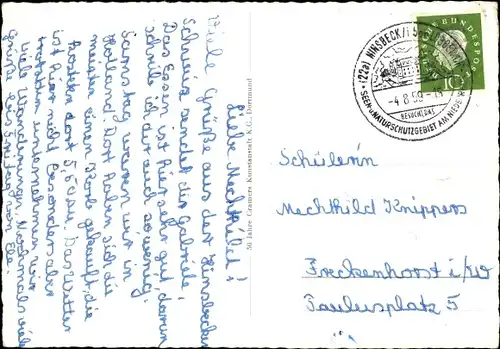 Liebe Mechthild!
Viele Grüße aus der Hinsbecker
Schweiz sendet dir Gabriele,
Das Essen ist hier sehr gut, darum
schreib ich dir auch so wenig.
Samstag waren wir in
Holland. Dort haben sich die
meisten einen Korb gekauft, die
kosten dort 5,50 DM. Das Wetter
ist hier nicht besonders aber
trotzdem unternehmen wir
viele Wanderungen. Nochmals viele
Grüße bis Freitag von Ele.
50 Jahre Cramers Kunstanstalt K.G. Dortmund
(22a) HINSBECK
-4.8.59
BESUCHT DAS
SEEN- u. NATURSCHUTZGEBIET AM
BUNDESPOST
10
Schülerin
Mechthild Knippers
Freckenhorst i/W
Paulusplatz 5